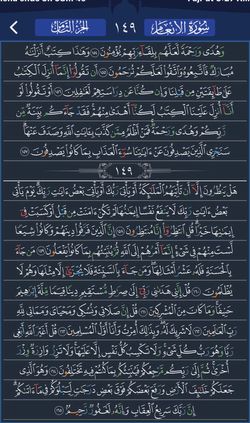 سورة الأنعام ١٤٩ الجزء الثامن
وهدى ورحمة لعلهم بلقاء ربهم يؤمنون وهذا كتاب أنزلناه
مبارك فاتبعوه واتقوا لعلكم ترحمون أن تقولوا إنما أنزل الكتب
على طائفتين من قبلنا وإن كنا عن دراستهم لغافلين أو تقولوا لو
أنا أنزل علينا الكتب لكنا أهدى منهم فقد جاءكم بينة من
ربكم وهدى ورحمة فمن أظلم ممن كذب بآيت الله وصدف عنها
سنجزي الذين يصدفون عن آيتنا سوء العذاب بما كانوا يصدفون
١٤٩
هل ينظرون إلا أن تأتيهم الملئكة أو يأتي ربك أو يأتي بعض آيت ربك يوم يأتي
بعض آيت ربك لا ينفع نفسا إيمنها لم تكن آمنت من قبل أو كسبت في
إيمنها خيرا قل انتظروا إنا منتظرون إن الذين فرقوا دينهم وكانوا شيعا
لست منهم في شيء إنما أمرهم إلى الله ثم ينبئهم بما كانوا يفعلون من جاء
بالحسنة فله عشر أمثالها ومن جاء بالسيئة فلا يجزى إلا مثلها وهم لا
يظلمون قل إنني هدىني ربي إلى صراط مستقيم دينا قيما ملة إبراهيم
حنيفا وما كان من المشركين قل إن صلاتي ونسكي ومحياي ومماتي لله
رب العلمين لا شريك له وبذلك أمرت وأنا أول المسلمين قل أغير الله أبغي
ربا وهو رب كل شيء ولا تكسب كل نفس إلا عليها ولا تزر وازرة وزر
أخرى ثم إلى ربكم مرجعكم فينبئكم بما كنتم فيه تختلفون وهو الذي
جعلكم خلئف الأرض ورفع بعضكم فوق بعض درجت ليبلوكم في ما آتىكم
إن ربك سريع العقاب وإنه لغفور رحيم